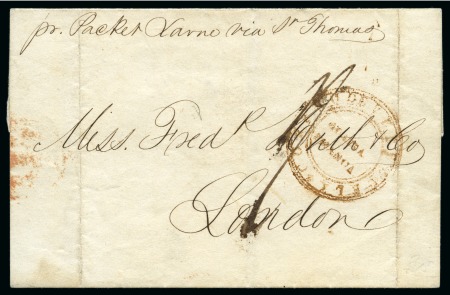 pr. Packet Larne via St Thomas
Miss. Fredk Huth & Co
London